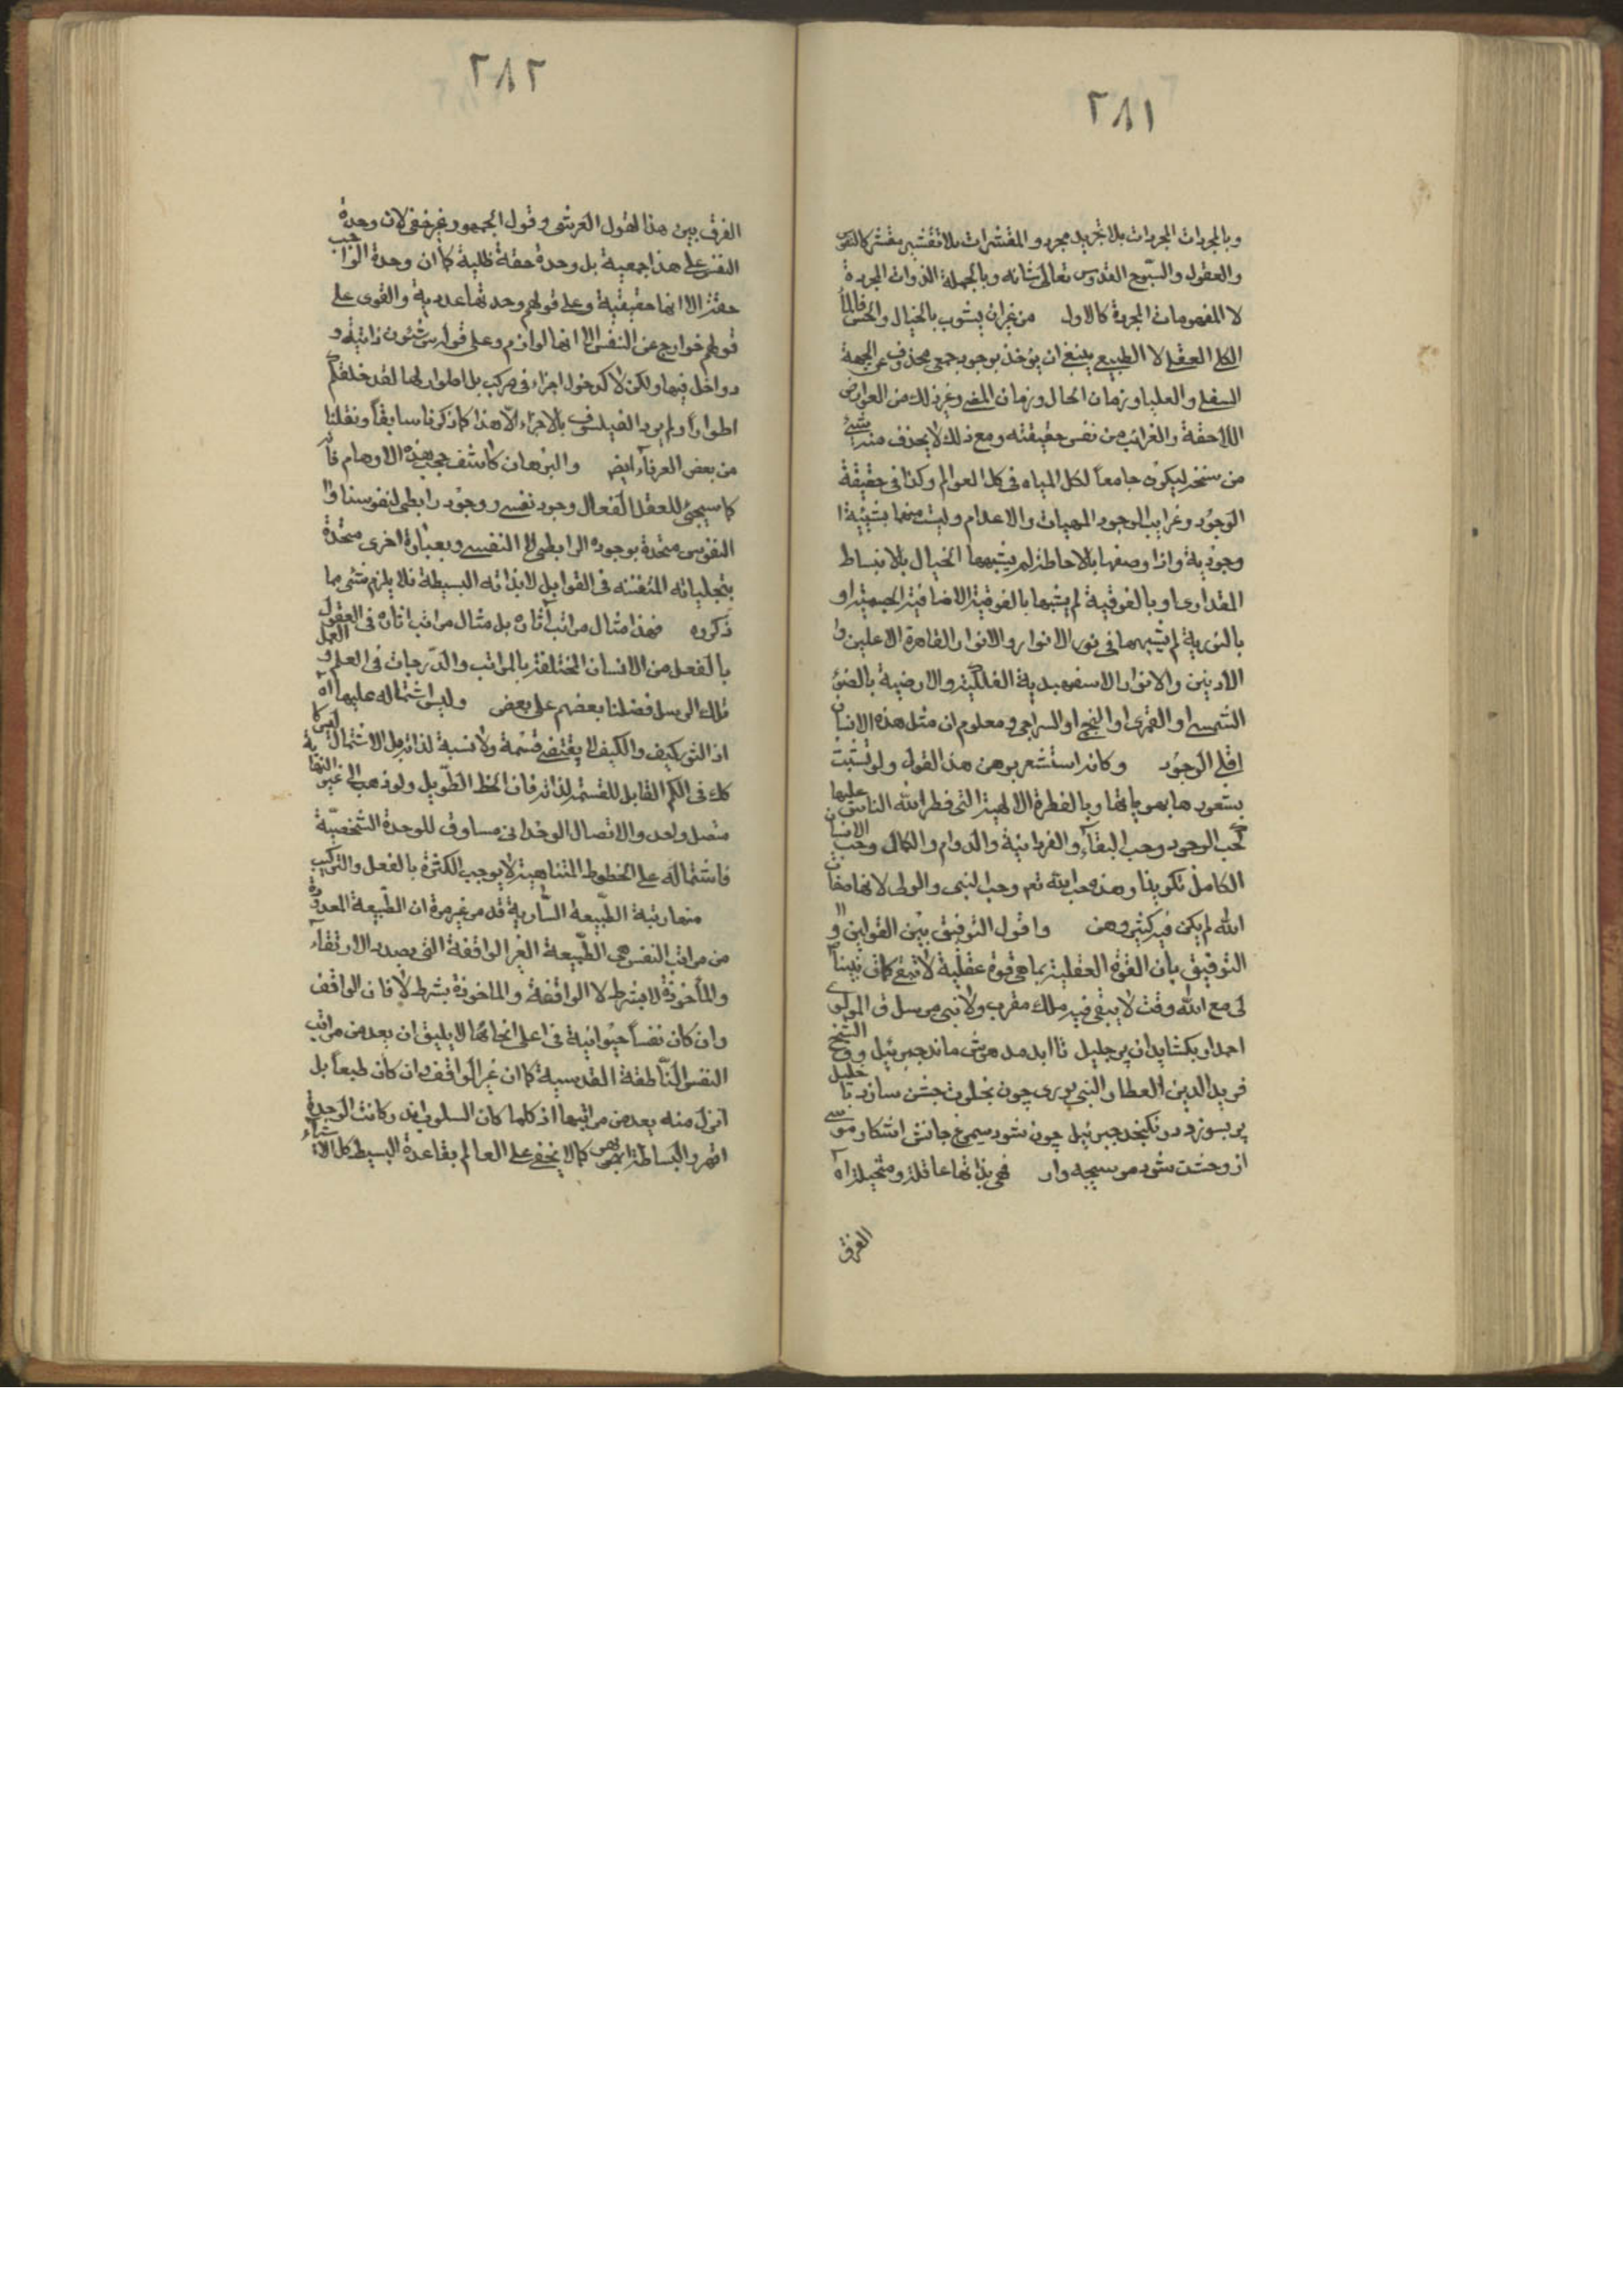 ٢٨١
وبالمجردات المجردات بلا تجريد مجرد والمقشرات بلا تقشير مقشر كالنفوس
والعقول والسبّوح القدوس تعالى شانه وبالجملة الذوات المجردة
لا المفهومات المجردة كالاول من غير ان يشوب بالخيال والحس فالماء
الكلى العقلى لا الطبيعى ينبغى ان يؤخذ بوجود جمعى محذوف عن الجهة
السفلى والعليا وزمان الحال وزمان المضى وغير ذلك من العوارض
اللاحقة والغرائب من نفس حقيقته ومع ذلك لا يحذف منه شئ
من سنخه ليكون جامعاً لكل المياه فى كل العوالم وكذا فى حقيقة
الوجود وغرايب الوجود المهيات والاعدام وليست منها بشيئية
وجودية واذا وصفها بالاحاطة لم يشبهها الخيال بالانبساط
المقدارى او بالفوقية لم يشبها بالفوقية الاضافية الجسمية او
بالنورية لم يشبهها فى نور الانوار والانوار القاهرة الاعلين و
الادنين والانوار الاسفهبدية الفلكية والارضية بالضوء
الشمسى او القمرى او النجمى او السراجى ومعلوم ان مثل هذه الانسان
اقلى الوجود وكانه استشعر بوهن هذا القول ولو تشبث
بشعورها بهوياتها وبالفطرة الالهية التى فطر الله الناس عليها
كحب الوجود وحب البقاء والفردانية والدوام والكمال وحب الانسان
الكامل تكوينا وهذه محب الله تعم وحب النبى والولى لانها صفات
الله لم يكن فيه كثير وهن واقول التوفيق بين القولين و
التوفيق بان القوة العقلية بما هى قوة عقلية لا تبقى كان نبينا
لى مع الله وقت لا يبقى فيه ملك مقرب ولا نبى مرسل ق المولوى
احمد او بكشايد ان پر جليل تا ابد مدهوش ماند جبرئيل وق الشيخ
فريد الدين العطار النبى بورى چون بخلوت جشن سازد با خليل
پر بسوزد در نكنجد جبرئيل چون شود سيمرغ جانش اشكار موسى
از وحشت شود موسيچه وار فهى بذاتها عاقلة ومتخيلة اه
الفرق
٢٨٢
الفرق بين هذا القول العرشى وقول الجمهور غير خفى لان وحدة
النفس على هذا جمعية بل وحدة حقة ظلية كما ان وحدة الواجب
حقة الا انها حقيقية وعلى قولهم وحدتها عددية والقوى على
قولهم خوارج عن النفس الا انها لوازم وعلى قوله س شئون ذاتية و
دواخل فيها ولكن لا كدخول اجزاء فى مركب بل اطوار لها لقد خلقكم
اطواراً ولم يرد الفيلسوف بالاجزاء الا هذا كما ذكرنا سابقاً ونقلنا
من بعض العرفاء ايض والبرهان كاشف حجب هذه الاوهام فا
كما سيجئ للعقل الفعال وجود نفسى ووجود رابطى لنفوسنا و
النفوس متحدة بوجوده الرابطى لا النفسى وبعبارة اخرى متحدة
بتجلياته المتفننة فى القوابل لا بذاته البسيطة فلا يلزم شئى مما
ذكروه فهذا مثال مراتب آثاره بل مثال مراتب اثاره فى العقول
بالفعل من الانسان المختلفة بالمراتب والدرجات فى العلم والعمل
تلك الرسل فضلنا بعضهم على بعض وليس اشتماله عليها اه
اذ النور كيف والكيف لا يقتضى قسمة ولا نسبة لذاته بل الاشتمال ليس كا
كك فى الكم القابل للقسمة لذاته فان الخط الطويل ولو ذهب الى غير النهاية
متصل واحد والاتصال الوحدانى مساوق للوحدة الشخصية
فاشتماله على الخطوط المتناهية لا يوجب الكثرة بالفعل والتركيب
منها رتبة الطبيعة السارية قد مر غير مرة ان الطبيعة المعدودة
من مراتب النفس هى الطبيعة الغير الواقفة التى بصدد الارتقاء
والمأخوذة لا بشرط لا الواقفة والماخوذة بشرط لا فان الواقف
وان كان نفساً حيوانية فى اعلى انحائها لا يليق ان يعد من مراتب
النفس الناطقة القدسية كما ان غير الواقف وان كان طبعاً بل
انزل منه يعد من مراتبها اذ كلما كان السلوب وكانت الوحدة
اقهر والبساطة ابهى كما لا يخفى على العالم بقاعدة البسيط كل الاشياء